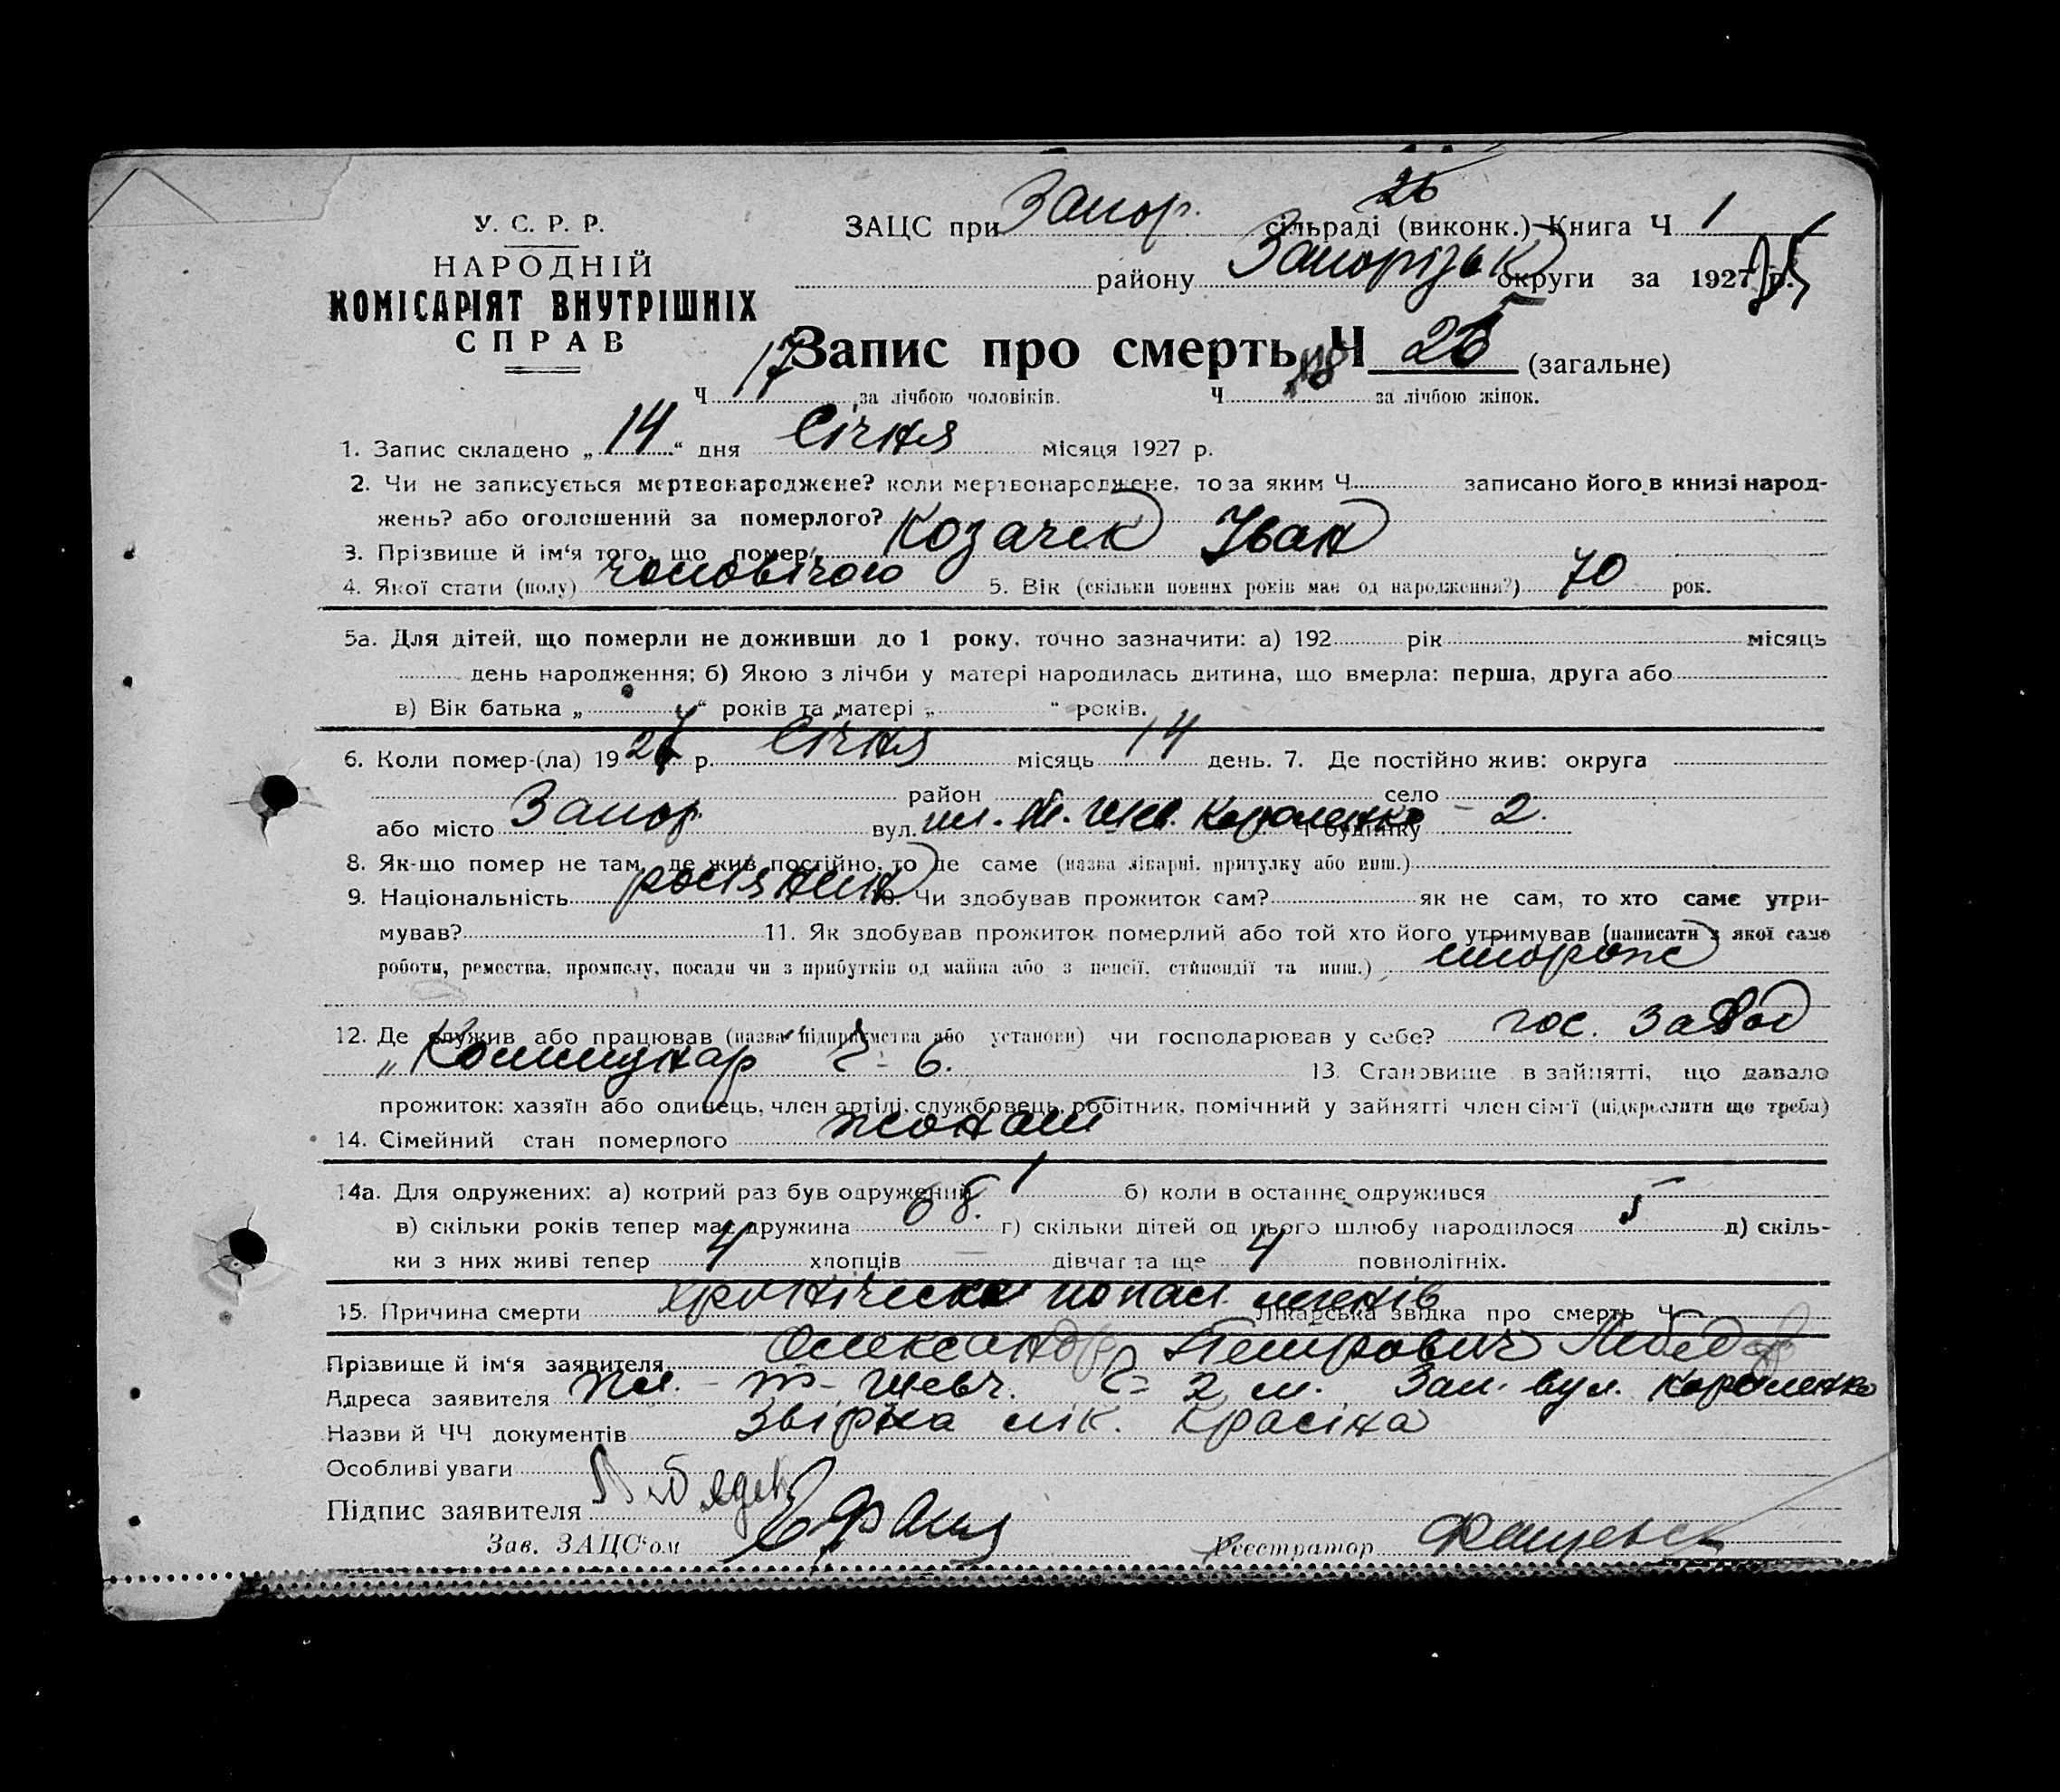 26
У. С. Р. Р.
НАРОДНІЙ
КОМІСАРІЯТ ВНУТРІШНІХ
СПРАВ
ЗАЦС при Запор. сільраді (виконк.) Книга Ч 1
району Запорізьк округи за 1927 р.
Запис про смерть Ч 26 (загальне)
Ч 17 за лічбою чоловіків. Ч за лічбою жінок.
1. Запис складено „ 14 “ дня Січня місяця 1927 р.
2. Чи не записується мертвонароджене? коли мертвонароджене, то за яким Ч. записано його в книзі народ-
жень? або оголошений за померлого?
3. Прізвище й ім‘я того, що помер Козачек Іван
4. Якої стати (полу) чоловічого 5. Вік (скільки повних років має од народження?) 70 рок.
5а. Для дітей, що померли не доживши до 1 року, точно зазначити: а) 192 рік місяць
день народження; б) Якою з лічби у матері народилась дитина, що вмерла: перша, друга або
в) Вік батька „ “ років та матері „ “ років.
6. Коли помер-(ла) 1927 р. Січня місяць 14 день. 7. Де постійно жив: округа
район село
або місто Запор. вул. пл. Т. Шев. Короленко Ч будинку – 2.
8. Як-що помер не там, де жив постійно, то де саме (назва лікарні, притулку або инш.)
9. Національність росіянин 10. Чи здобував прожиток сам? як не сам, то хто саме утри-
мував? 11. Як здобував прожиток померлий або той хто його утримував (написати з якої саме
роботи, ремества, промислу, посади чи з прибутків од майна або з пенсії, стипендії та инш.) сторож
12. Де служив або працював (назва підприємства або установи) чи господарював у себе? гос. завод
„Коммунар 6. 13. Становище в зайнятті, що давало
прожиток: хазяїн або одинець, член артілі, службовець, робітник, помічний у зайнятті член сім‘ї (підкреслити що треба)
14. Сімейний стан померлого жонат
14а. Для одружених: а) котрий раз був одружений 1 б) коли в останнє одружився
в) скільки років тепер має дружина 68. г) скільки дітей од цього шлюбу народилося 5 д) скіль-
ки з них живі тепер 4 хлопців — дівчат та ще 4 повнолітніх.
15. Причина смерти легенів Лікарська звідка про смерть Ч
Прізвище й ім‘я заявителя Олександр Петрович Лебедєв
Адреса заявителя пл. – Т – Шевч. 2 Зап. вул. Короленко
Назви й ЧЧ документів лік. Красіна
Особливі уваги
Підпис заявителя
Зав. ЗАЦС‘ом Реєстратор